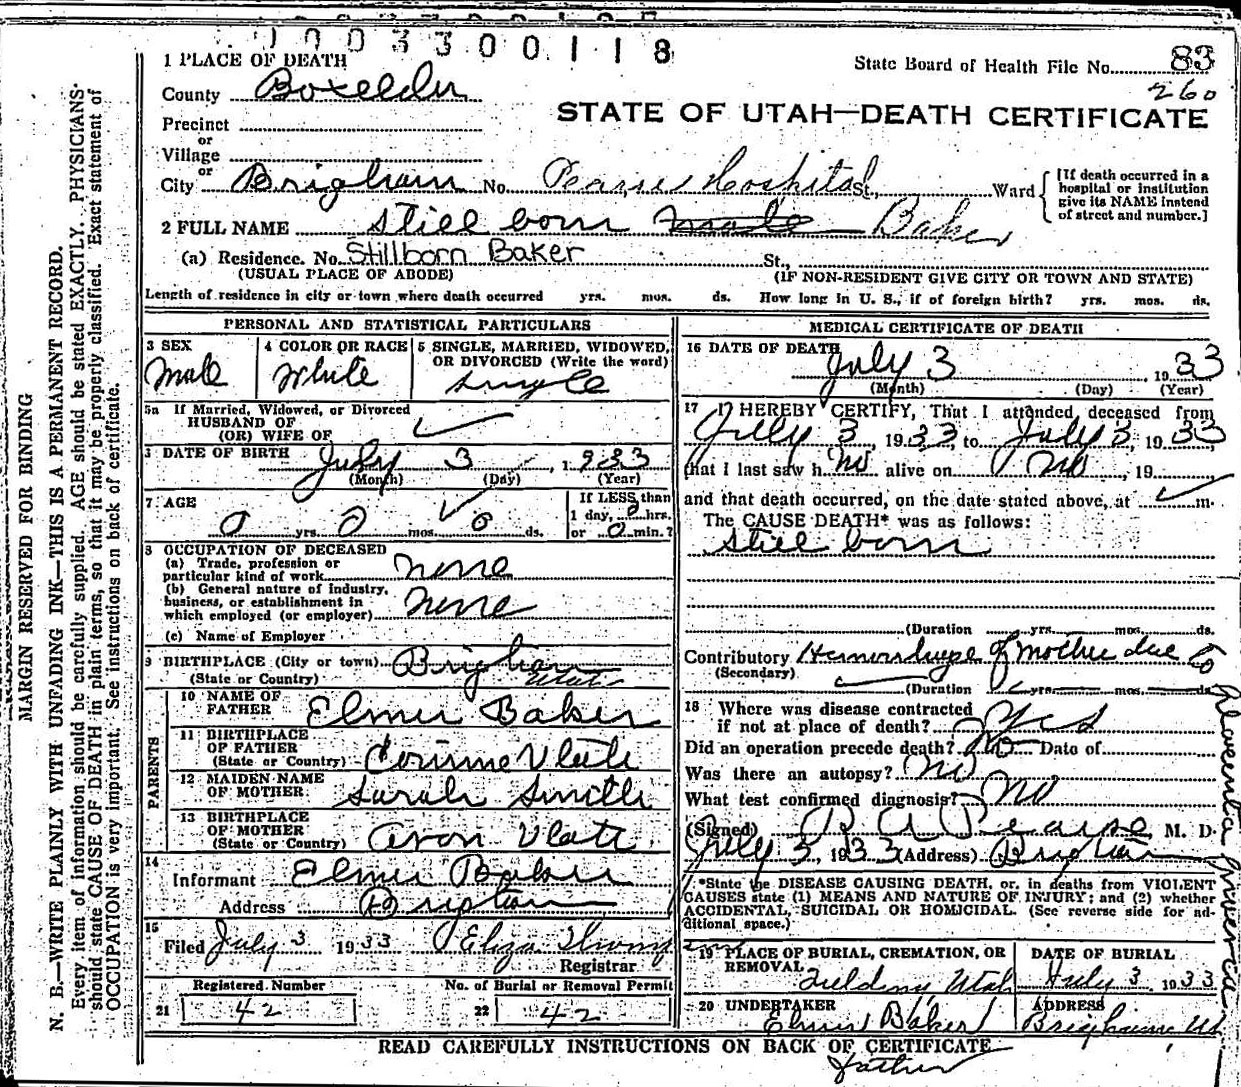 1003300118
1 PLACE OF DEATH
State Board of Health File No. 83
260
County Boxelder
STATE OF UTAH—DEATH CERTIFICATE
Precinct
or
Village
or
City Brigham No. Pearse Hospital St., Ward
[If death occurred in a hospital or institution give its NAME instead of street and number.]
2 FULL NAME still born male Baker
(a) Residence. No. Stillborn Baker St.,
(USUAL PLACE OF ABODE) (IF NON-RESIDENT GIVE CITY OR TOWN AND STATE)
Length of residence in city or town where death occurred yrs. mos. ds. How long in U. S., if of foreign birth? yrs. mos. ds.
PERSONAL AND STATISTICAL PARTICULARS
3 SEX Male
4 COLOR OR RACE White
5 SINGLE, MARRIED, WIDOWED, OR DIVORCED (Write the word) single
5a If Married, Widowed, or Divorced
HUSBAND OF
(OR) WIFE OF
DATE OF BIRTH July 3, 1933
(Month) (Day) (Year)
7 AGE 0 yrs. 0 mos. 0 ds.
If LESS than
1 day, 0 hrs.
or 0 min.?
8 OCCUPATION OF DECEASED
(a) Trade, profession or
particular kind of work none
(b) General nature of industry,
business, or establishment in
which employed (or employer) none
(c) Name of Employer
9 BIRTHPLACE (City or town) Brigham
(State or Country) Utah
PARENTS
10 NAME OF
FATHER Elmer Baker
11 BIRTHPLACE
OF FATHER
(State or Country) Corinne Utah
12 MAIDEN NAME
OF MOTHER Sarah Smith
13 BIRTHPLACE
OF MOTHER
(State or Country) Avon Utah
14
Informant Elmer Baker
Address Brigham
15
Filed July 3 1933 Eliza
Registrar
Registered Number No. of Burial or Removal Permit
21 42 22 42
MEDICAL CERTIFICATE OF DEATH
16 DATE OF DEATH July 3, 1933
(Month) (Day) (Year)
17 I HEREBY CERTIFY, That I attended deceased from
July 3, 1933 to July 3, 1933
that I last saw h no alive on no, 19
and that death occurred, on the date stated above, at m.
The CAUSE DEATH* was as follows:
still born
(Duration yrs. mos. ds.
Contributory Hemorrhage of mother due to
(Secondary)
(Duration yrs. mos. ds.
Placenta previa
18 Where was disease contracted
if not at place of death? yes
Did an operation precede death? no Date of
Was there an autopsy? no
What test confirmed diagnosis? no
(Signed) R A Pearse M. D.
July 3, 1933 (Address) Brigham
*State the DISEASE CAUSING DEATH, or, in deaths from VIOLENT
CAUSES state (1) MEANS AND NATURE OF INJURY; and (2) whether
ACCIDENTAL, SUICIDAL OR HOMICIDAL. (See reverse side for ad-
ditional space.)
19 PLACE OF BURIAL, CREMATION, OR
REMOVAL Fielding, Utah
DATE OF BURIAL
July 3 1933
20 UNDERTAKER
Elmer Baker
ADDRESS
Brigham Ut
READ CAREFULLY INSTRUCTIONS ON BACK OF CERTIFICATE
father
MARGIN RESERVED FOR BINDING
N. B.—WRITE PLAINLY WITH UNFADING INK—THIS IS A PERMANENT RECORD.
Every item of information should be carefully supplied. AGE should be stated EXACTLY. PHYSICIANS
should state CAUSE OF DEATH in plain terms, so that it may be properly classified. Exact statement of
OCCUPATION is very important. See instructions on back of certificate.